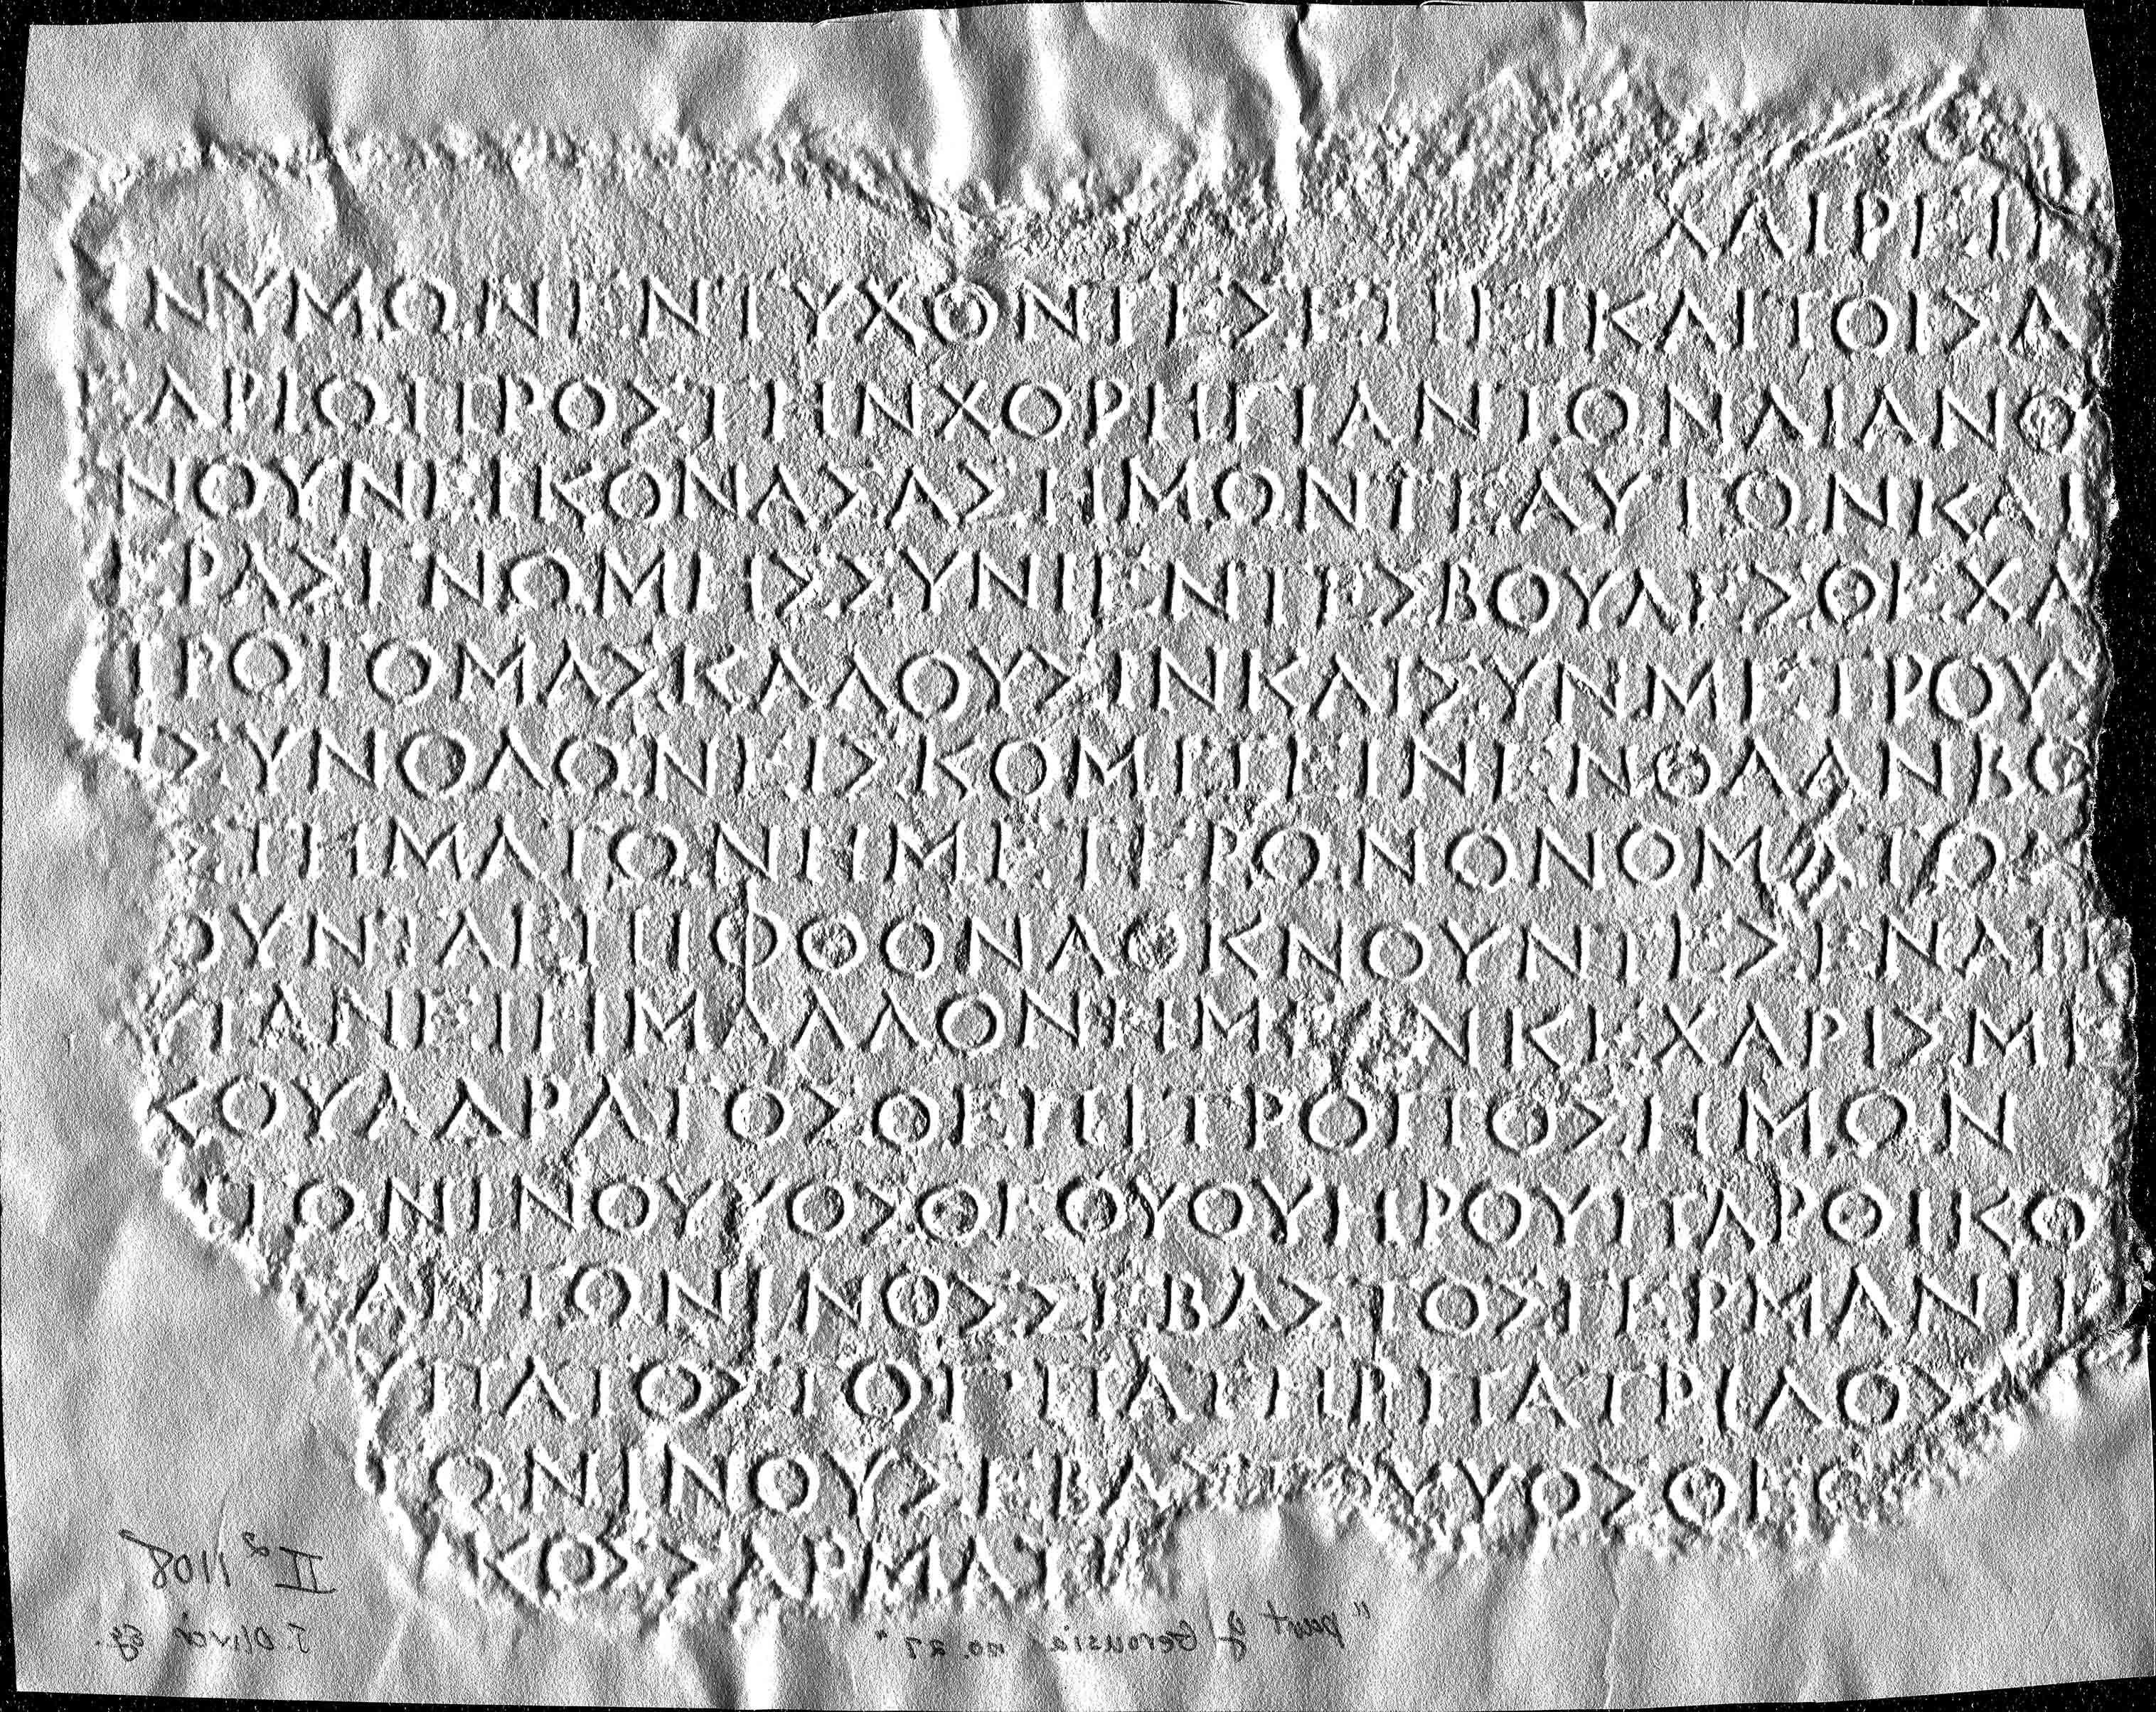 ΧΑΙΡΕΙΝ
ΝΥΜΩΝΕΝΤΥΧΟΝΤΕΣΕΠΕΙΚΑΙΤΟΙΣΑ
ΑΡΙΩΠΡΟΣΤΗΝΧΟΡΗΓΙΑΝΤΩΝΔΙΑΝΟ
ΝΟΥΝΕΙΚΟΝΑΣΑΣΗΜΩΝΤΕΑΥΤΩΝΚΑΙ
ΕΡΑΣΓΝΩΜΗΣΣΥΝΙΕΝΤΕΣΒΟΥΛΕΣΘΕΧΑ
ΠΡΟΤΟΜΑΣΚΑΛΟΥΣΙΝΚΑΙΣΥΝΜΕΤΡΟΥΣ
ΣΥΝΟΔΩΝΕΙΣΚΟΜΙΖΕΙΝΕΝΘΑΑΝΒΟ
ΣΤΗΜΑΤΩΝΗΜΕΤΕΡΩΝΟΝΟΜΑΤΩΝ
ΟΥΝΤΑΕΠΙΦΘΟΝΑΟΚΝΟΥΝΤΕΣΕΝΑΠ
ΤΑΝΕΠΙΜΑΛΛΟΝΗΜΕΙΝΚΕΧΑΡΙΣΜΕ
ΚΟΥΔΔΡΑΤΟΣΟΕΠΙΤΡΟΠΟΣΗΜΩΝ
ΤΩΝΙΝΟΥΥΟΣΘΕΟΥΟΥΗΡΟΥΠΑΡΘΙΚΟ
ΑΝΤΩΝΙΝΟΣΣΕΒΑΣΤΟΣΓΕΡΜΑΝΙΚ
ΥΠΑΤΟΣΤΟΓΠΑΤΗΡΠΑΤΡΙΔΟΣ
ΩΝΙΝΟΥΣΕΒΑΣΤΟΥΥΟΣΘΕΟ
ΚΟΣΣΑΡΜΑΤΙ
II² 1108
J. Oliver Eg.
"part of Gerousia no. 27"